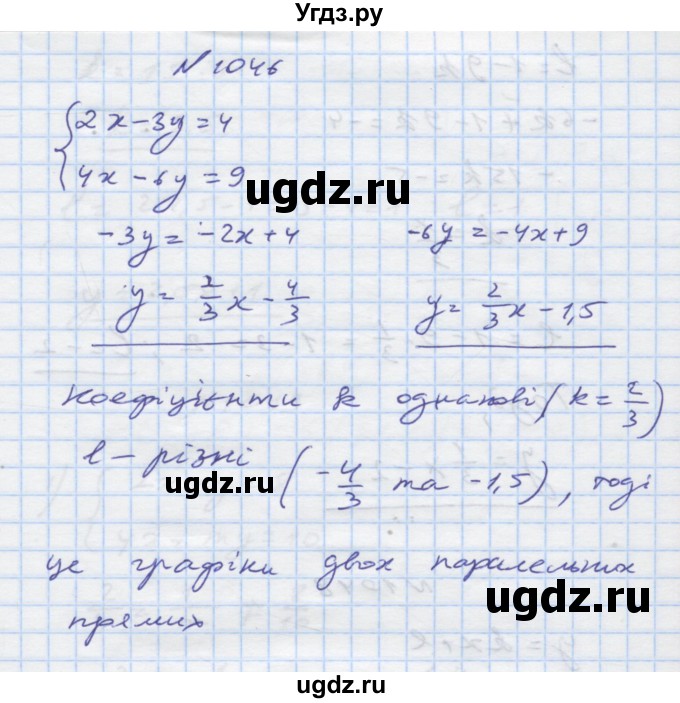 Угдз.ру
N 1046
{2x-3y=4
4x-6y=9
ugdz.ru
-3y=-2x+4    -6y=-4x+9
y=2/3x-4/3    y=2/3x-1,5
Коефіцієнти k однакові (k=2/3)
l - різні (-4/3 та -1,5), тоді
ugdz.ru
це графіки двох паралельних
ugdz.ru
прямих
ugdz.ru